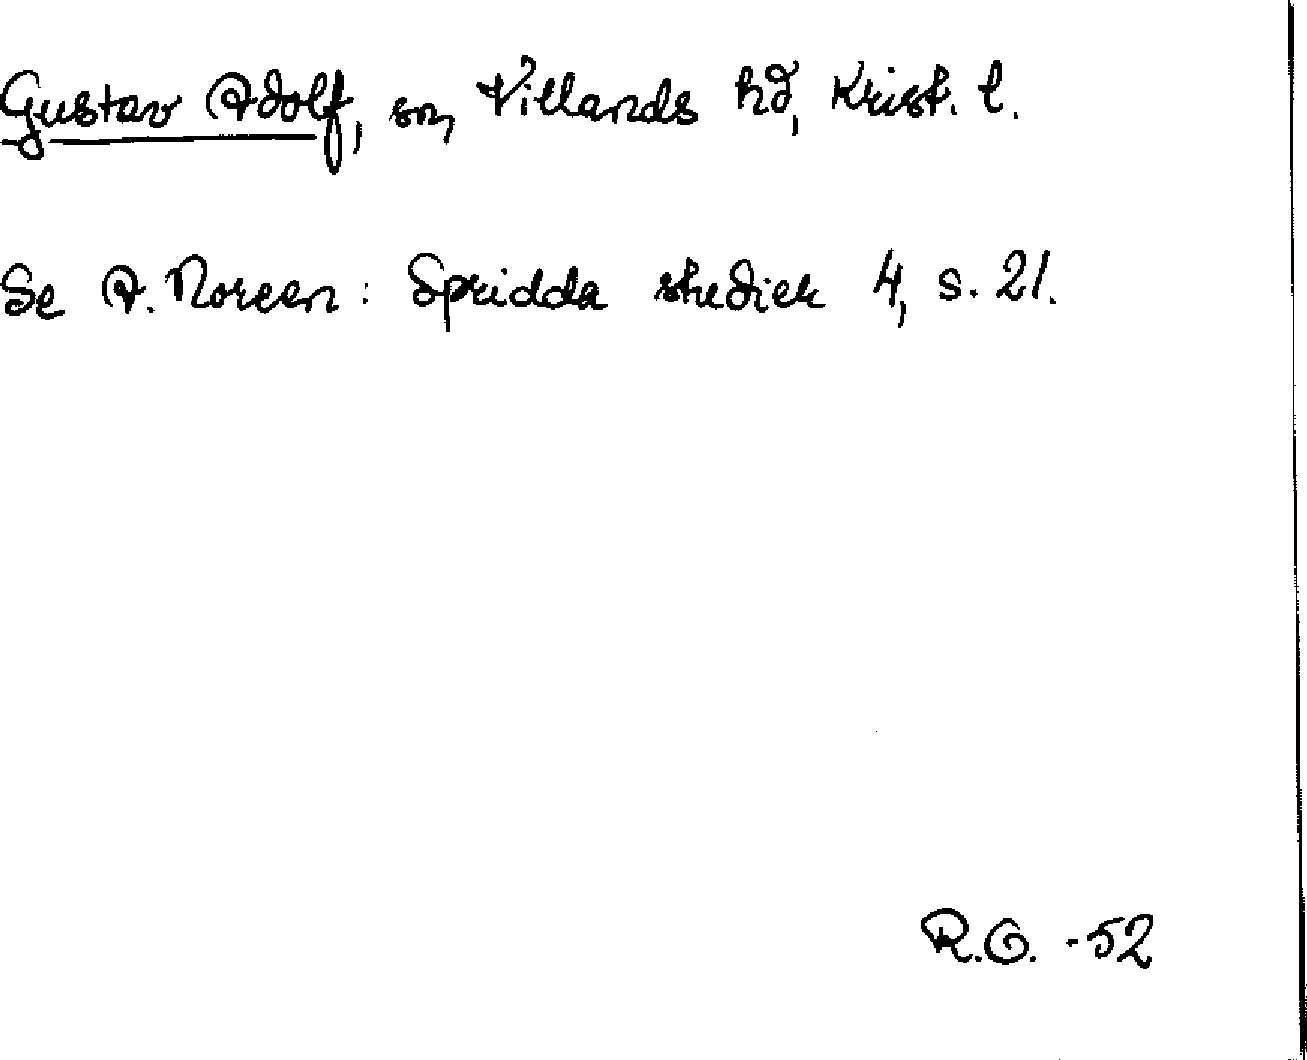 Gustav Adolf, sn, Villands hd, Krist. l.
Se A. Noreen: Spridda studier 4, s. 21.
R.O. -52